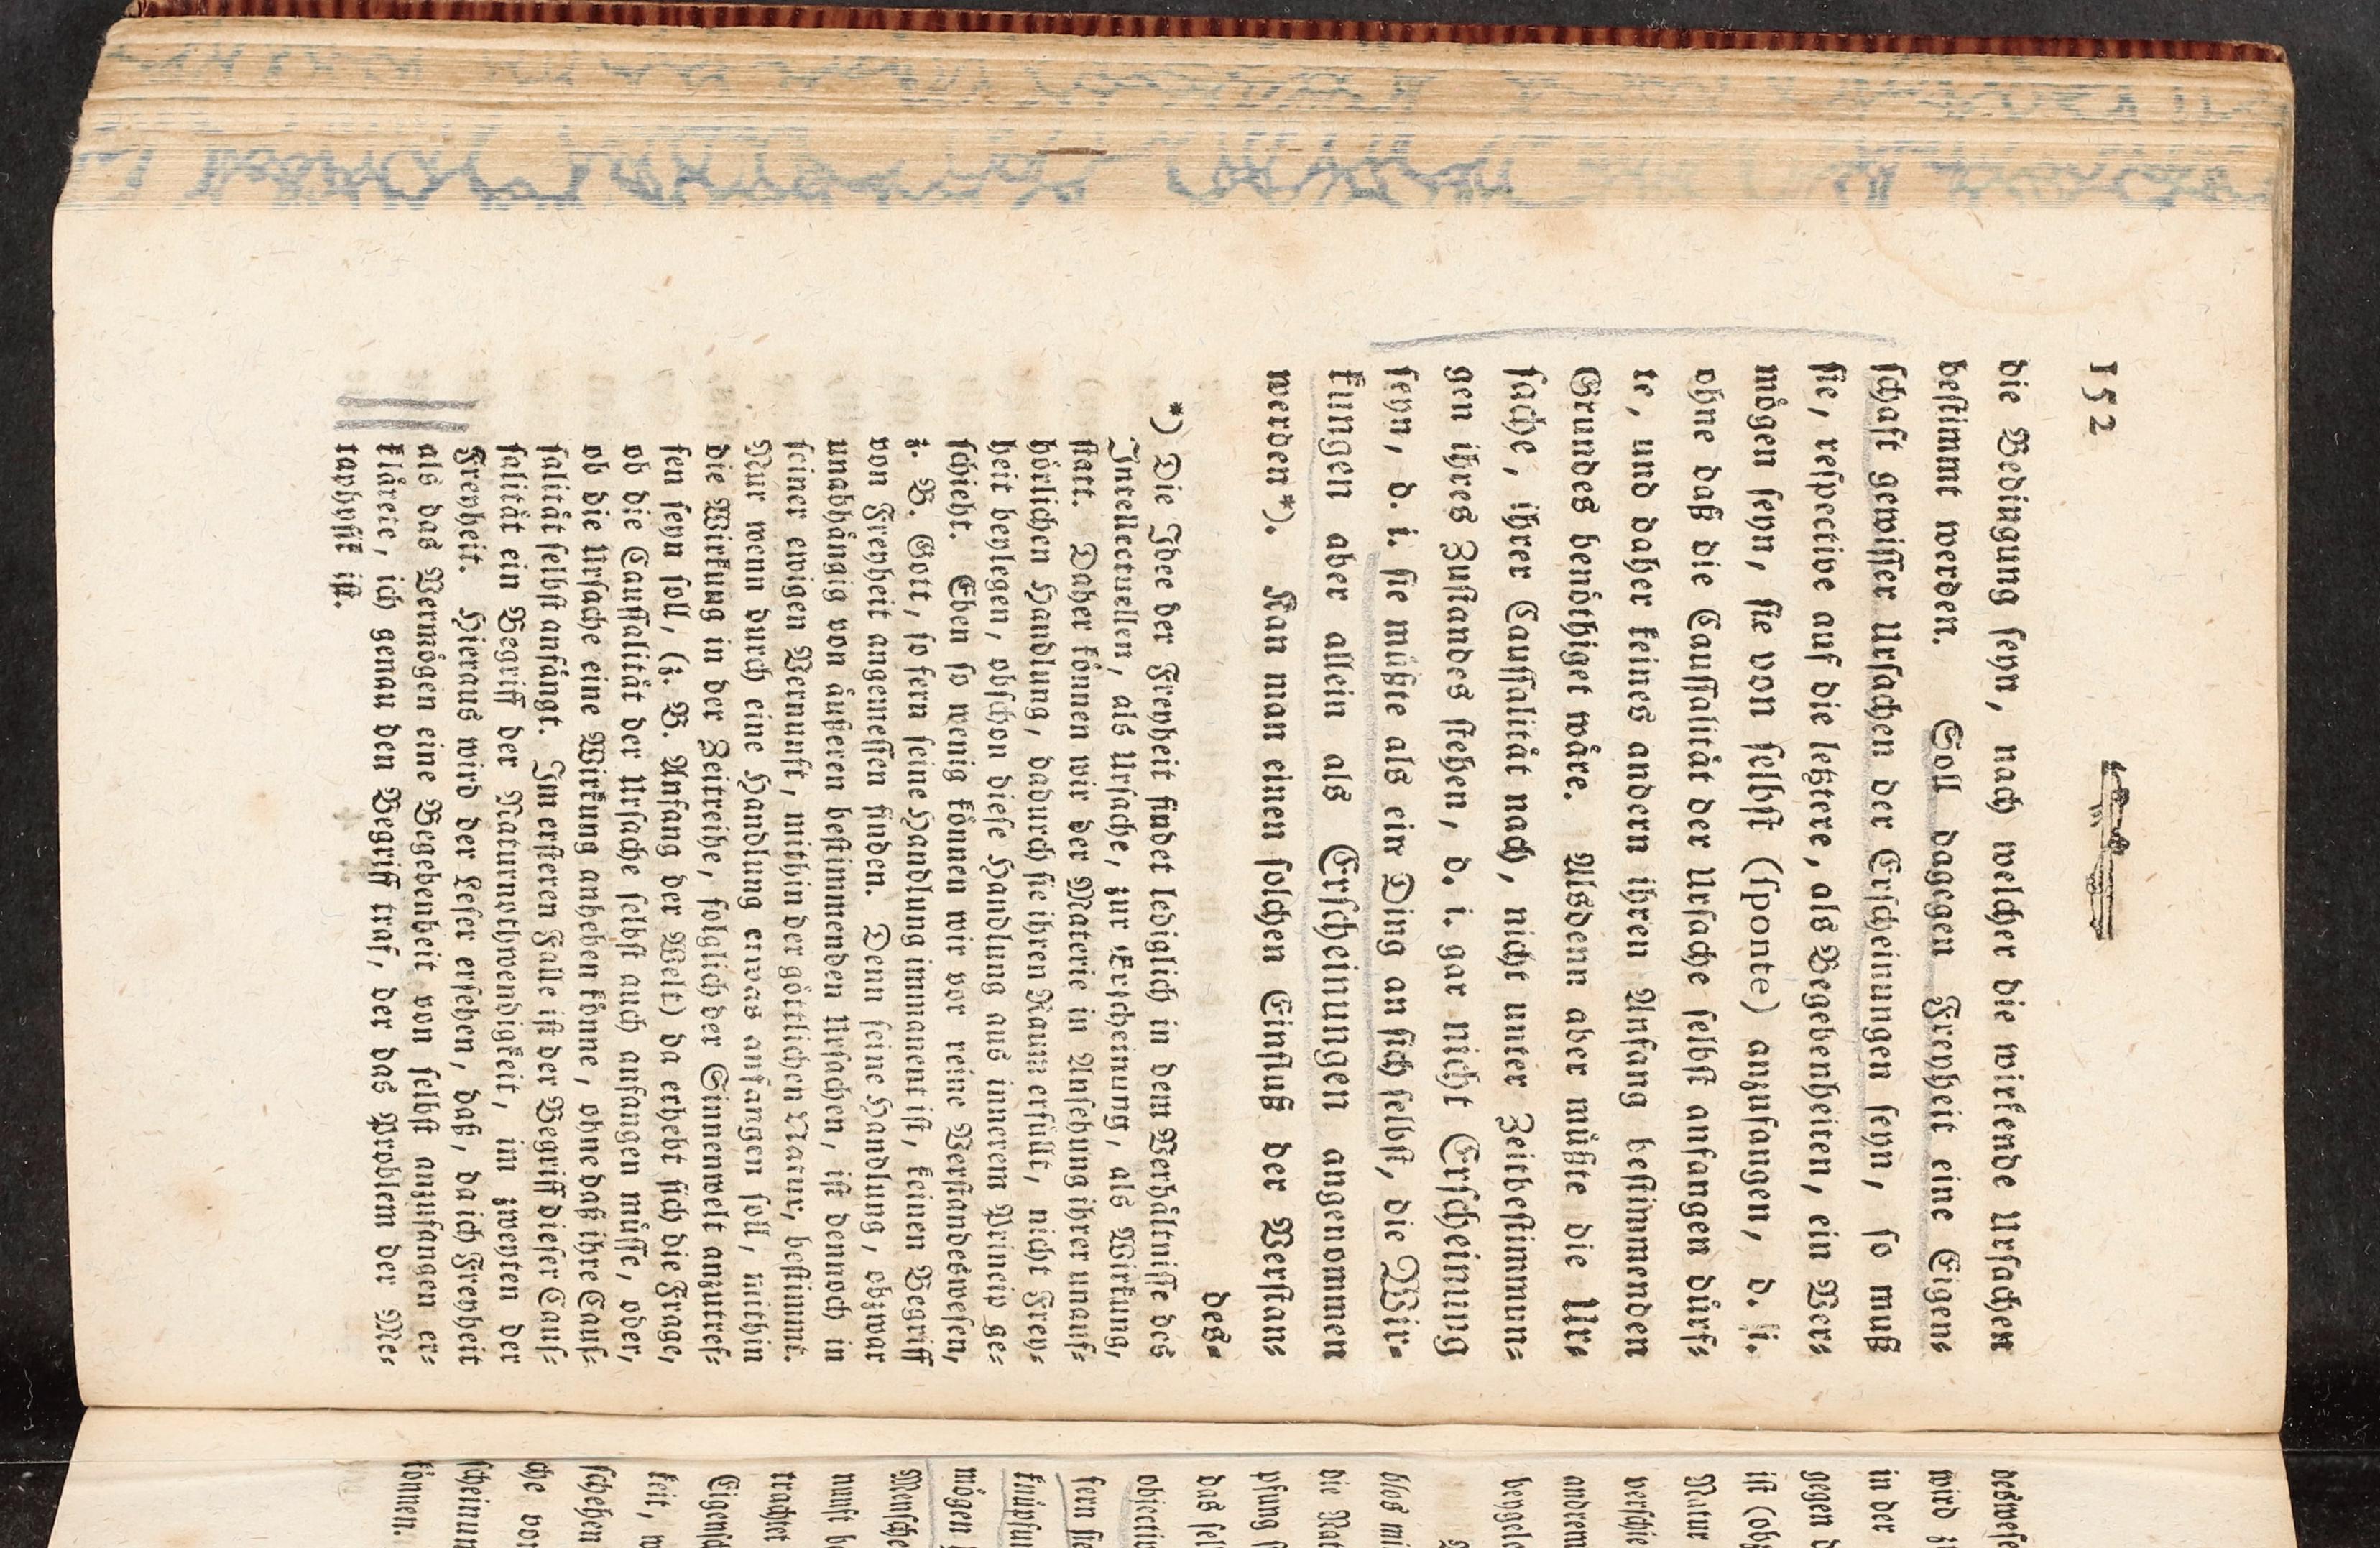 152
die Bedingung ſeyn, nach welcher die wirkende Urſachen
beſtimmt werden. Soll dagegen Freyheit eine Eigen⸗
ſchaft gewiſſer Urſachen der Erſcheinungen ſeyn, ſo muß
ſie, reſpective auf die letztere, als Begebenheiten, ein Ver⸗
mögen ſeyn, ſie von ſelbſt (ſponte) anzufangen, d. i.
ohne daß die Cauſſalität der Urſache ſelbſt anfangen dürf⸗
te, und daher keines andern ihren Anfang beſtimmenden
Grundes benöthiget wäre. Alsdenn aber müßte die Ur⸗
ſache, ihrer Cauſſalität nach, nicht unter Zeitbeſtimmun⸗
gen ihres Zuſtandes ſtehen, d. i. gar nicht Erſcheinung
ſeyn, d. i. ſie müßte als ein Ding an ſich ſelbſt, die Wir⸗
kungen aber allein als Erſcheinungen angenommen
werden*). Kan man einen ſolchen Einfluß der Verſtan⸗
des⸗
*) Die Idee der Freyheit findet lediglich in dem Verhältniſſe des
Intellectuellen, als Urſache, zur Erſcheinung, als Wirkung,
ſtatt. Daher können wir der Materie in Anſehung ihrer unauf⸗
hörlichen Handlung, dadurch ſie ihren Raum erfüllt, nicht Frey⸗
heit beylegen, obſchon dieſe Handlung aus innerem Princip ge⸗
ſchieht. Eben ſo wenig können wir vor reine Verſtandesweſen,
z. B. Gott, ſo fern ſeine Handlung immanent iſt, keinen Begriff
von Freyheit angemeſſen finden. Denn ſeine Handlung, obzwar
unabhängig von äußeren beſtimmenden Urſachen, iſt dennoch in
ſeiner ewigen Vernunft, mithin der göttlichen Natur, beſtimmt.
Nur wenn durch eine Handlung etwas anfangen ſoll, mithin
die Wirkung in der Zeitreihe, folglich der Sinnenwelt anzutref⸗
fen ſeyn ſoll, (z. B. Anfang der Welt) da erhebt ſich die Frage,
ob die Cauſſalität der Urſache ſelbſt auch anfangen müſſe, oder,
ob die Urſache eine Wirkung anheben könne, ohne daß ihre Cauſ⸗
ſalität ſelbſt anfängt. Im erſteren Falle iſt der Begriff dieſer Cauſ⸗
ſalität ein Begriff der Naturnothwendigkeit, im zweyten der
Freyheit. Hieraus wird der Leſer erſehen, daß, da ich Freyheit
als das Vermögen eine Begebenheit von ſelbſt anzufangen er⸗
klärete, ich genau den Begriff traf, der das Problem der Me⸗
taphyſik iſt.
desweſe
wird z
in der
gegen d
iſt (ob
Natur
verſchie
anderem
beygele
blos mi
die Nat
pfung
das ſel
obiectiv
fern ſie
knüpfun
mögen
Menſche
nunft b
trachtet
Eigenſch
keit, w
ſchehen
che vor
ſcheinun
können.